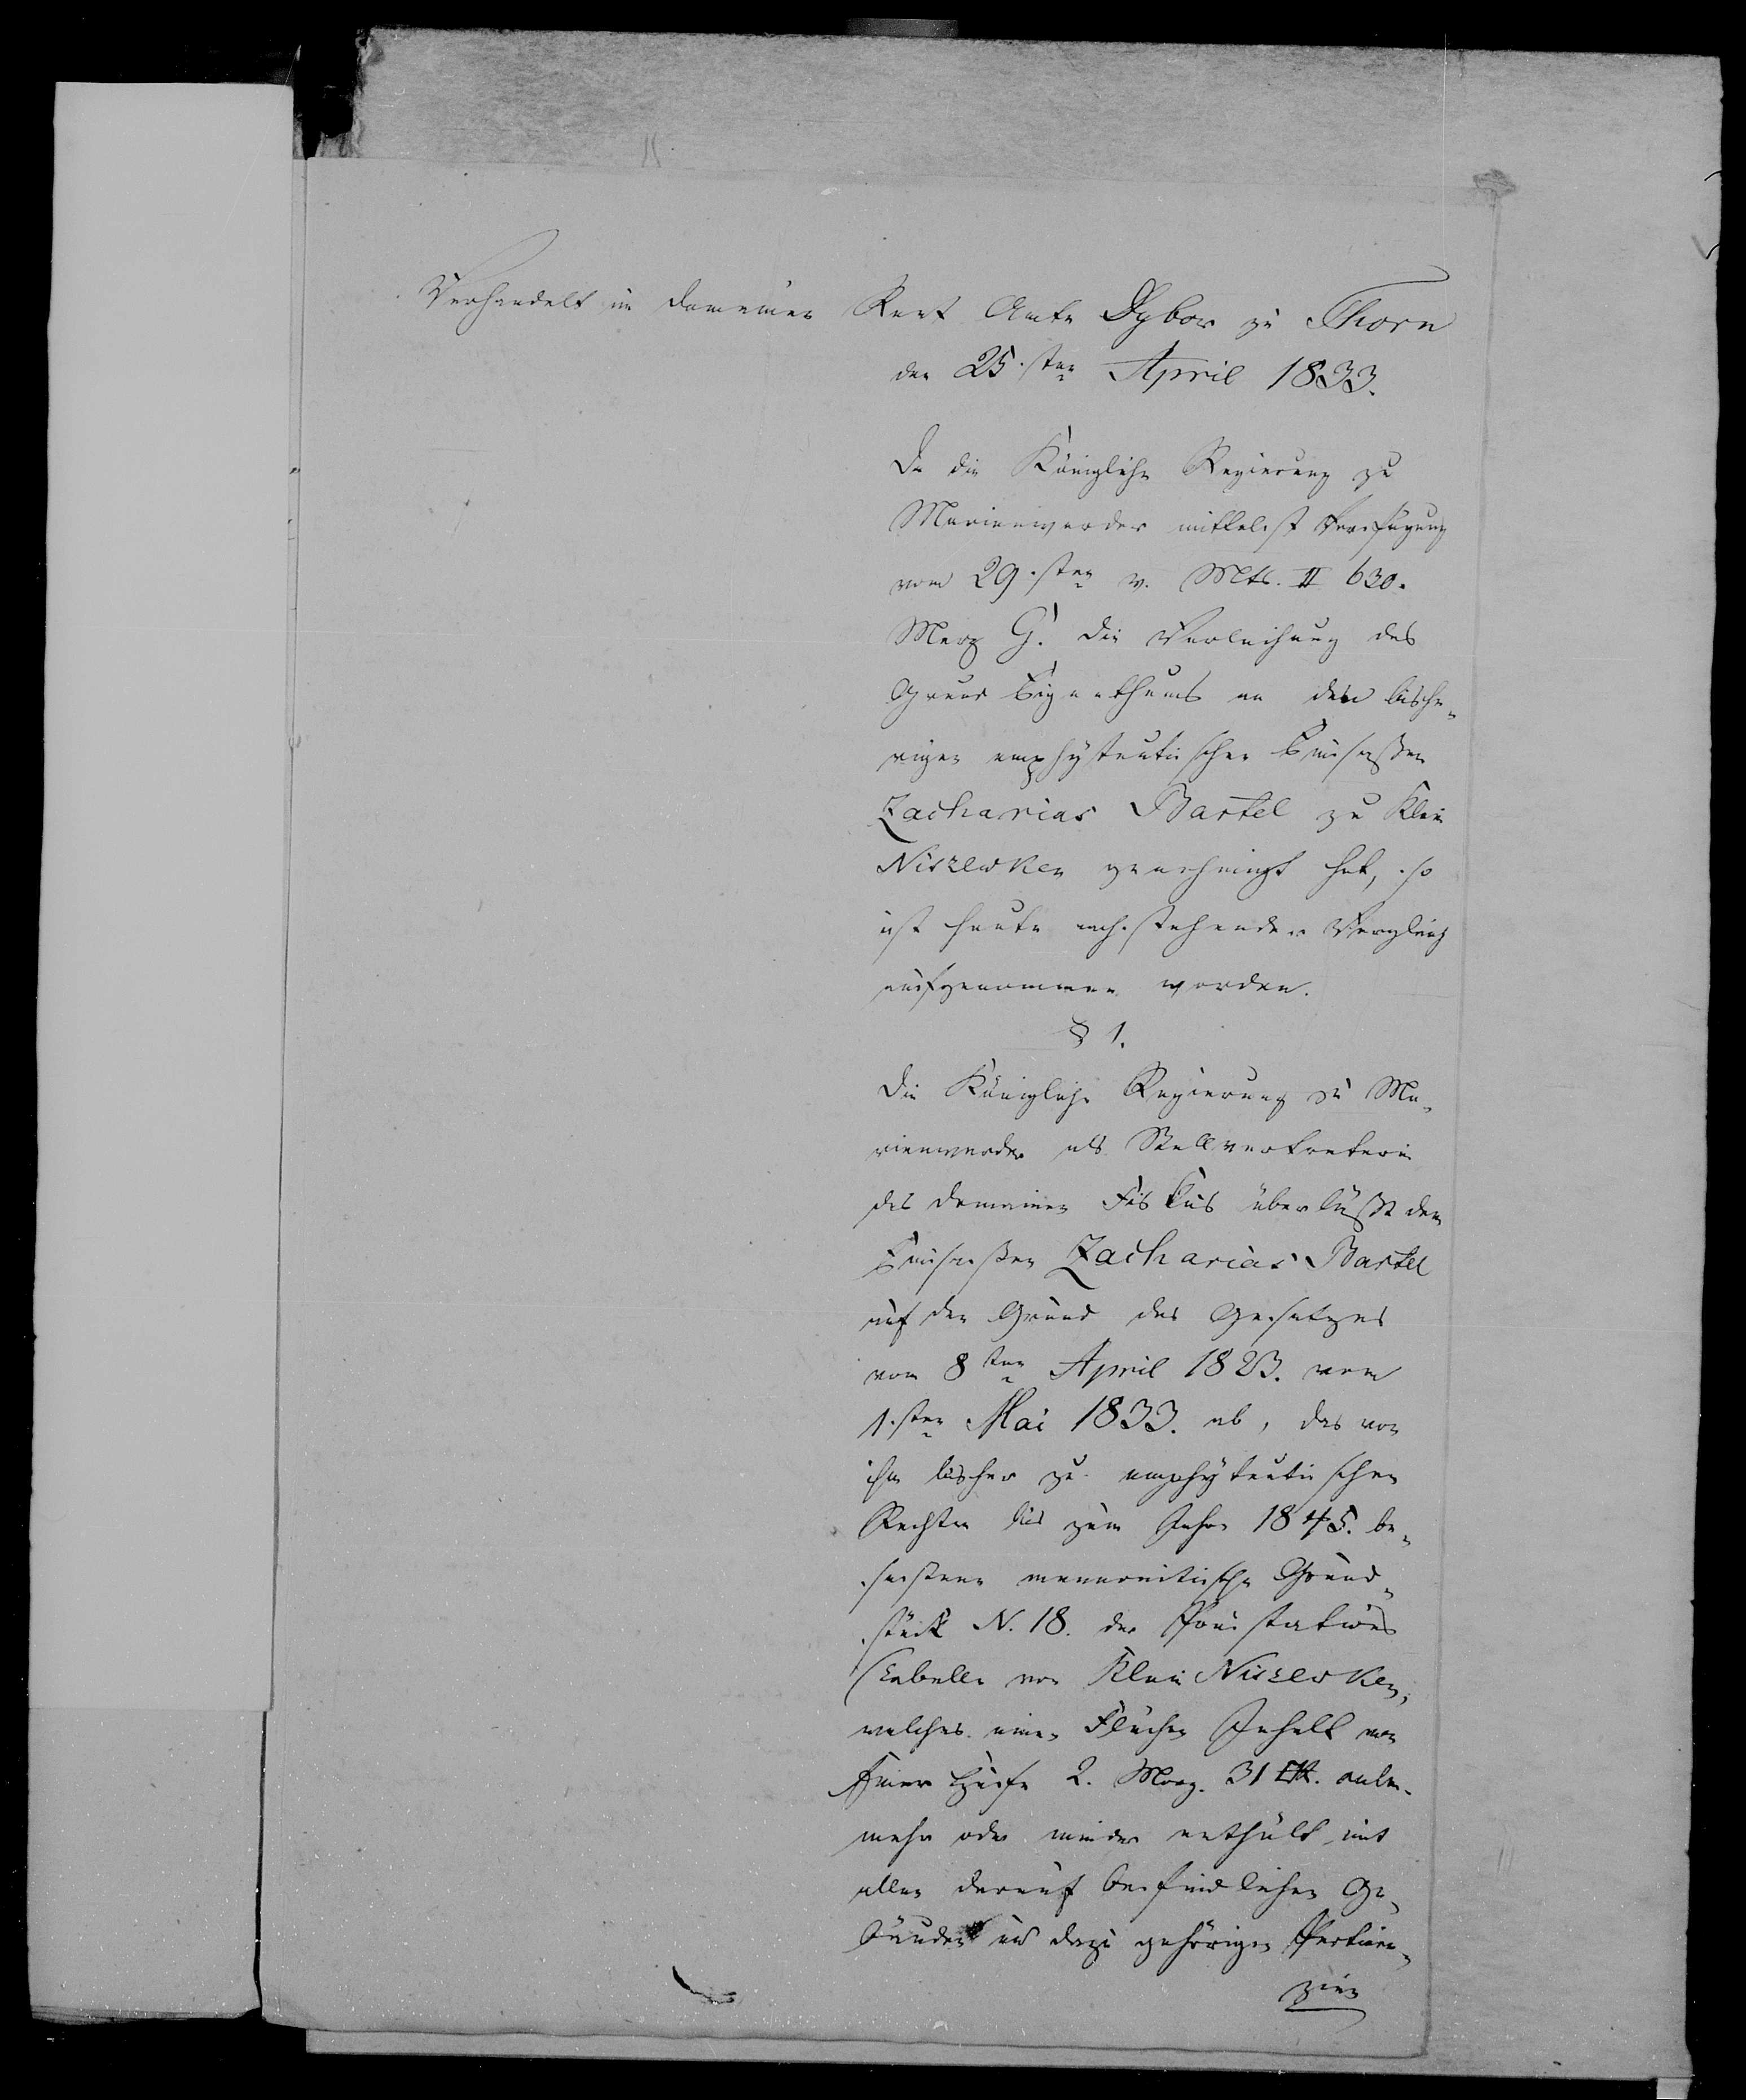 Verhandelt im Domainen Rent Amte Dybow zu Thorn
den 25.sten April 1833.
Da die Königliche Regierung zu
Marienwerder mittelst Verfügung
vom 29.sten v. Mts. II 630.
Merz G. die Verleihung des
Grund Eigenthums an den bishe-
rigen emphyteutischen Einsaßen
Zacharias Bartel zu Klein
Niszewken genehmigt hat, so
ist heute nachstehender Vergleich
aufgenommen worden.
§ 1.
Die Königliche Regierung zu Ma-
rienwerder als Stellvertreterin
des Domainen Fiskus überläßt dem
Einsaßen Zacharias Bartel
auf den Grund des Gesetzes
vom 8ten April 1823. vom
1.sten Mai 1833. ab, das von
ihm bisher zu emphyteutischen
Rechten bis zum Jahre 1845. be-
seßene mennonitische Grund-
stück N. 18. der Prästations
Tabelle von Klein Niszewken,
welches einen Flächen Inhalt von
Einer Hufe 2. Morg. 31 □R. culm.
mehr oder minder enthält mit
allen darauf befindlichen Ge-
bäuden und dazu gehörigen Pertinen-
zien